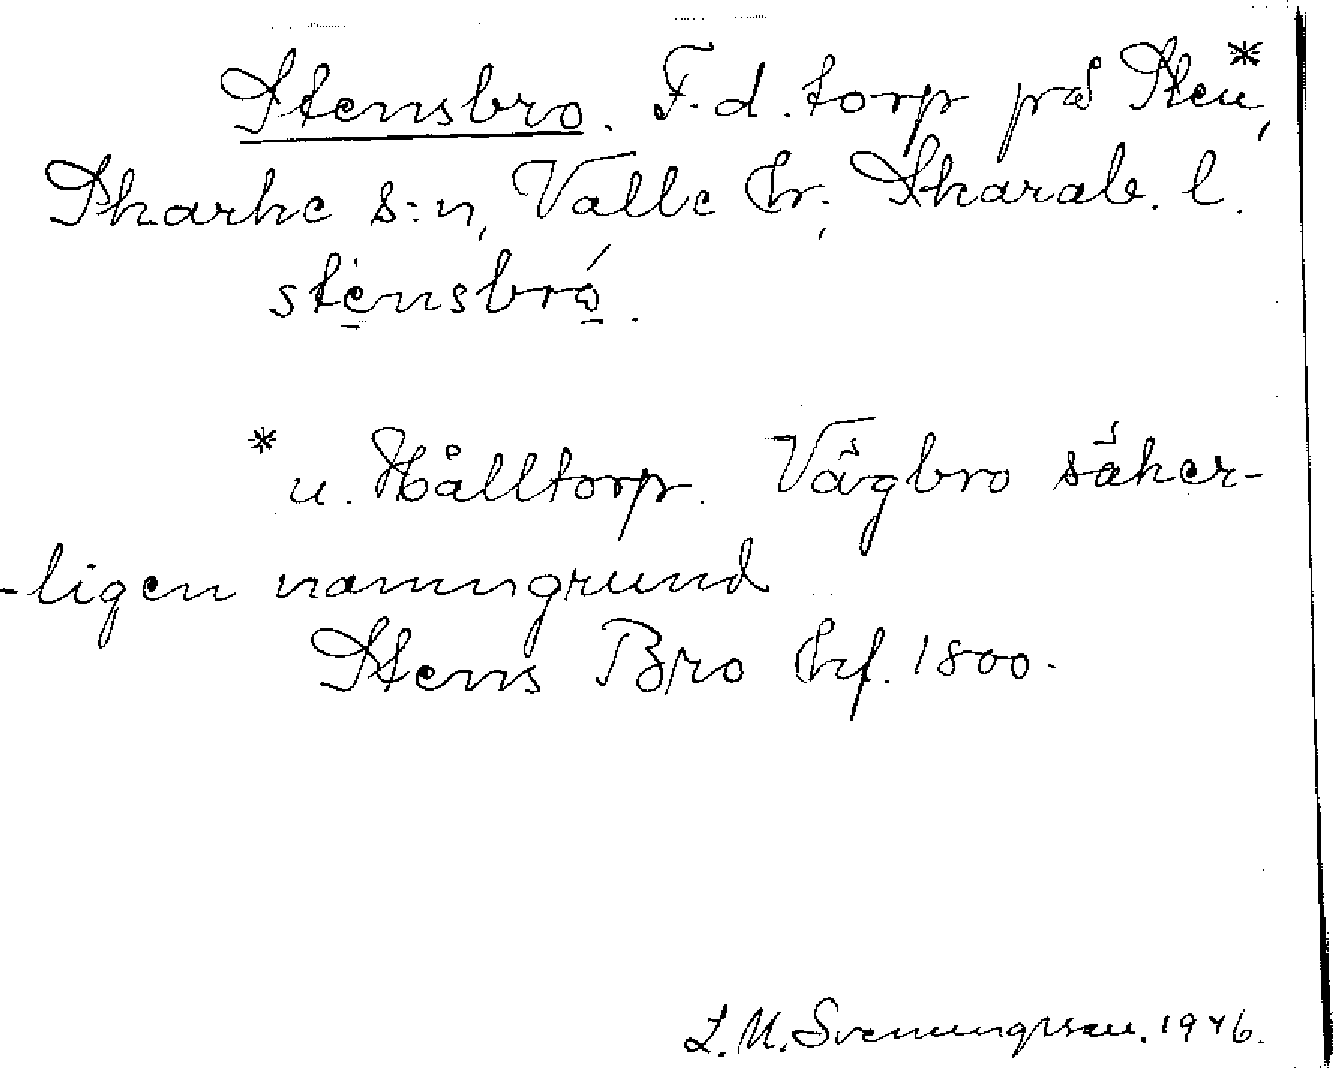 Stensbro. F.d. torp på Sten*,
Skarke s:n, Valle hr., Skarab. l.
stensbro.
* u. Hålltorp. Vägbro säker-
-ligen namngrund
Stens Bro hf. 1800.
L. M. Svenungsson. 1946.